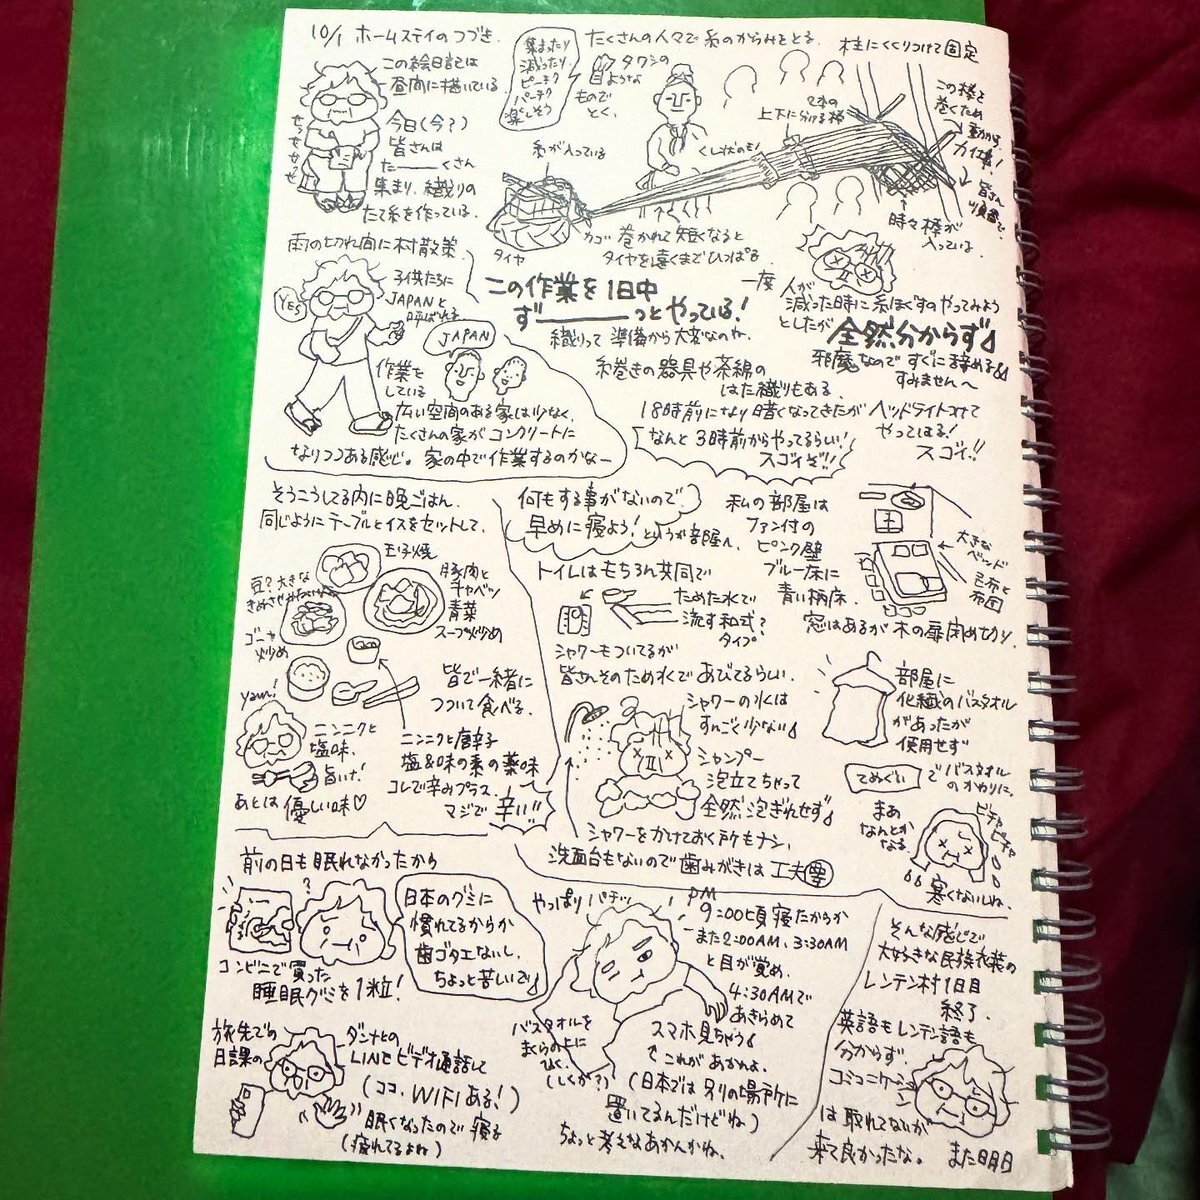 10/1 ホームステイのつづき
この絵日記は
昼間に描いている
せっせせっせ
今日(今?)
皆さんは
たーーーくさん
集まり、織りの
たて糸を作っている。
集まったり
減ったり
ピーチク
パーチク
楽しそう
たくさんの人々で糸のからみをとる。
柱にくくりつけて固定
タワシの
ような
もので
とく。
糸が入っている
2本の
上下に分ける棒
くし状のモノ
この棒を
巻くため
動かす
力仕事!
皆さん
順番で。
時々棒が
入っている
タイヤ
カゴ
巻かれて短くなると
タイヤを遠くまでひっぱる
この作業を1日中
ずーーーーっとやっている!
織りって準備から大変なのね。
一度
人が
減った時に糸ほぐすのやってみよう
としたが
全然分からず♪
邪魔なのですぐに諦める
すみません〜
雨の切れ間に村散策
YES
子供たちに
JAPANと
呼ばれる
JAPAN
作業を
している
広い空間のある家は少なく、
たくさんの家がコンクリートに
なりつつある感じ。家の中で作業するのかなー
糸巻きの器具や茶綿の
はた織りもある。
18時前になり暗くなってきたが
ヘッドライトつけて
やってはる!
スゴイ!!
なんと3時前からやってるらしい!
スゴイぞ!!
そうこうしてる内に晩ごはん。
同じようにテーブルとイスをセットして、
玉子焼
豆?大きな
ゴーヤ
炒め
豚肉と
キャベツ
青菜
スープ炒め
皆で一緒に
つついて食べる。
yam!
ニンニクと
塩味、
旨いだ!
あとは優しい味♡
ニンニクと唐辛子
塩&味の素の薬味
コレで辛みプラス。
マジで辛い!!
何もする事がないので
早めに寝よう!というか部屋へ。
私の部屋は
ファン付の
ピンク壁
ブルー床に
青い柄床。
大きな
ベッド
毛布と
布団
窓はあるが木の扉閉め切り。
トイレはもちろん共同で
ためた水で
流す和式?
タイプ
シャワーもついてるが
皆さんそのため水であびてるらしい。
シャワーの水は
すんごく少ない♪
シャンプー
泡立てちゃって
全然泡きれせず♪
シャワーをかけておく所もナシ。
洗面台もないので歯みがきは工夫要
部屋に
化繊のバスタオル
があったが
使用せず
てぬぐいでバスタオル
のかわりに。
まあ
なんとか
なる。
ビチャ
ビチャ
寒くないしね。
前の日も眠れなかったから
?
コンビニで買った
睡眠グミを1粒!
日本のグミに
慣れてるからか
歯ゴタエないし、
ちょっと苦いで♪
旅先での
日課の
ダンナとの
LINEビデオ通話して
(ココ、WIFIある!)
眠くなったので寝る
(疲れてるよね)
やっぱりパチッ
PM
9:00頃寝たからか
また2:00AM、3:30AM
と目が覚め、
4:30AMで
あきらめて
スマホ見ちゃう♪
これがあかんよ。
(日本では別の場所に
置いてるんだけどね)
ちょっと考えなあかんかね。
バスタオルを
まくらの上に
ひく。
(しくか?)
そんな感じで
大好きな民族衣装の
レンテン村1日目
終了。
英語もレンテン語も
分からず、
コミュニケーション
は取れてないが
来て良かったな。
また明日